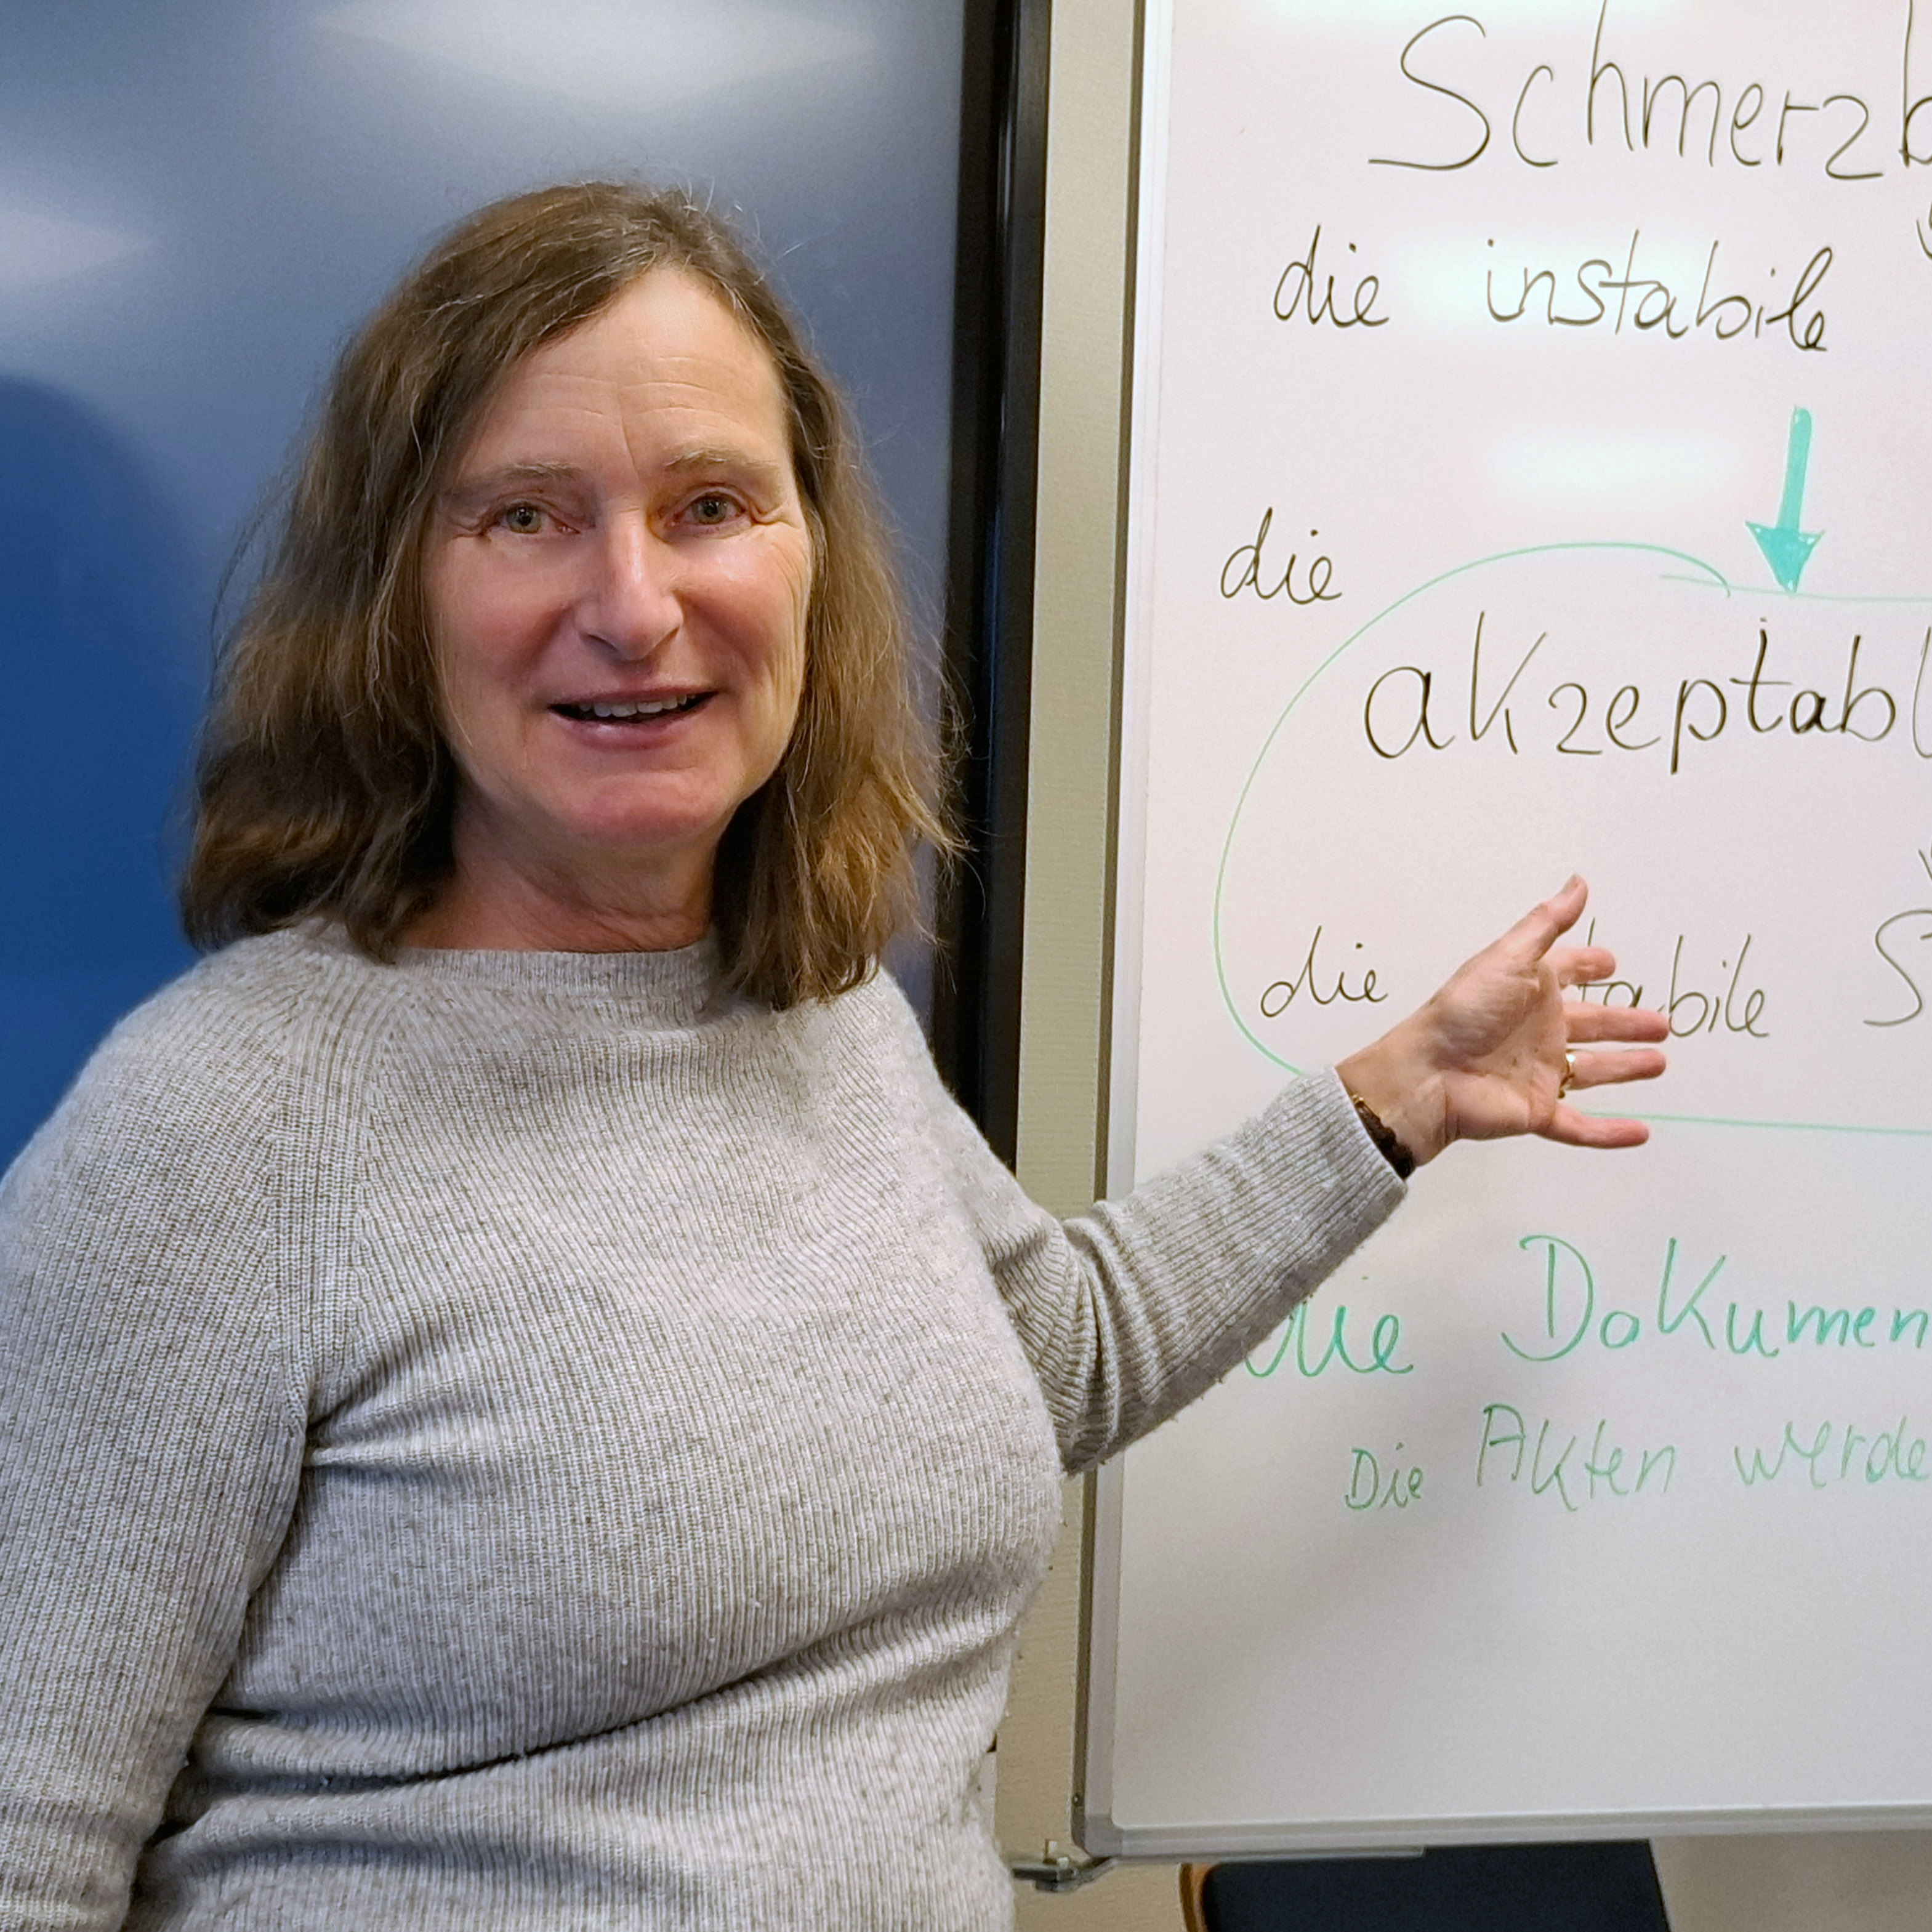 Schmerzb
die instabile
die
akzeptabl
die stabile S
die Dokumen
Die Akten werde